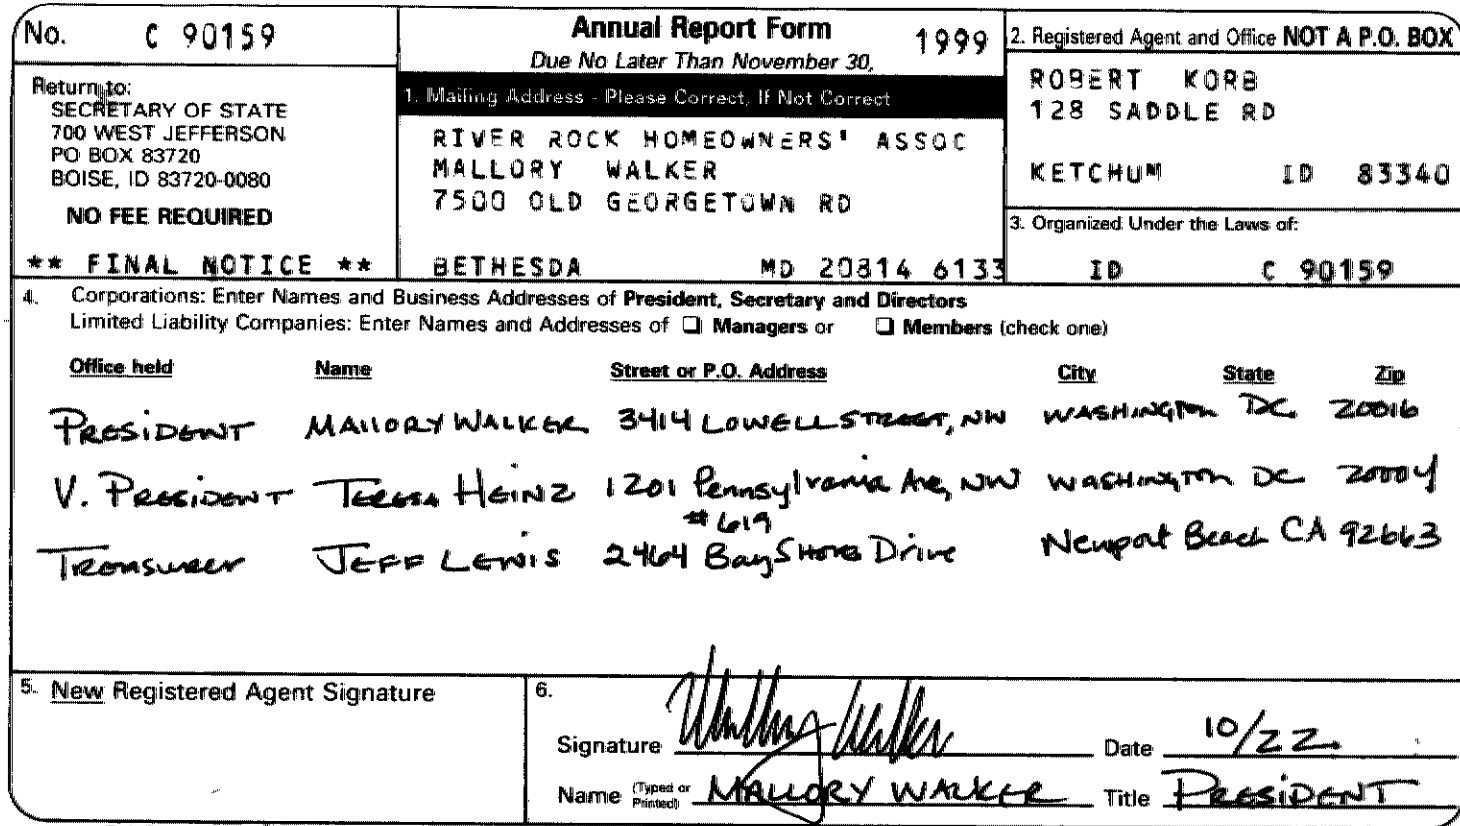 No. C 90159
Return to:
SECRETARY OF STATE
700 WEST JEFFERSON
PO BOX 83720
BOISE, ID 83720-0080
NO FEE REQUIRED
** FINAL NOTICE **
Annual Report Form 1999
Due No Later Than November 30,
1. Mailing Address - Please Correct, If Not Correct
RIVER ROCK HOMEOWNERS' ASSOC
MALLORY WALKER
7500 OLD GEORGETOWN RD
BETHESDA MD 20814 6133
2. Registered Agent and Office NOT A P.O. BOX
ROBERT KORB
128 SADDLE RD
KETCHUM ID 83340
3. Organized Under the Laws of:
ID C 90159
4. Corporations: Enter Names and Business Addresses of President, Secretary and Directors
Limited Liability Companies: Enter Names and Addresses of ❑ Managers or ❑ Members (check one)
Office held Name Street or P.O. Address City State Zip
PRESIDENT MALLORY WALKER 3414 LOWELL STREET, NW WASHINGTON DC 20016
V. PRESIDENT TERESA HEINZ 1201 Pennsylvania Ave, NW WASHINGTON DC 20004
#619
Treasurer JEFF LEWIS 2464 BayShore Drive Newport Beach CA 92663
5. New Registered Agent Signature
6.
Signature Mallory Walker Date 10/22
Name (Typed or Printed) MALLORY WALKER Title PRESIDENT